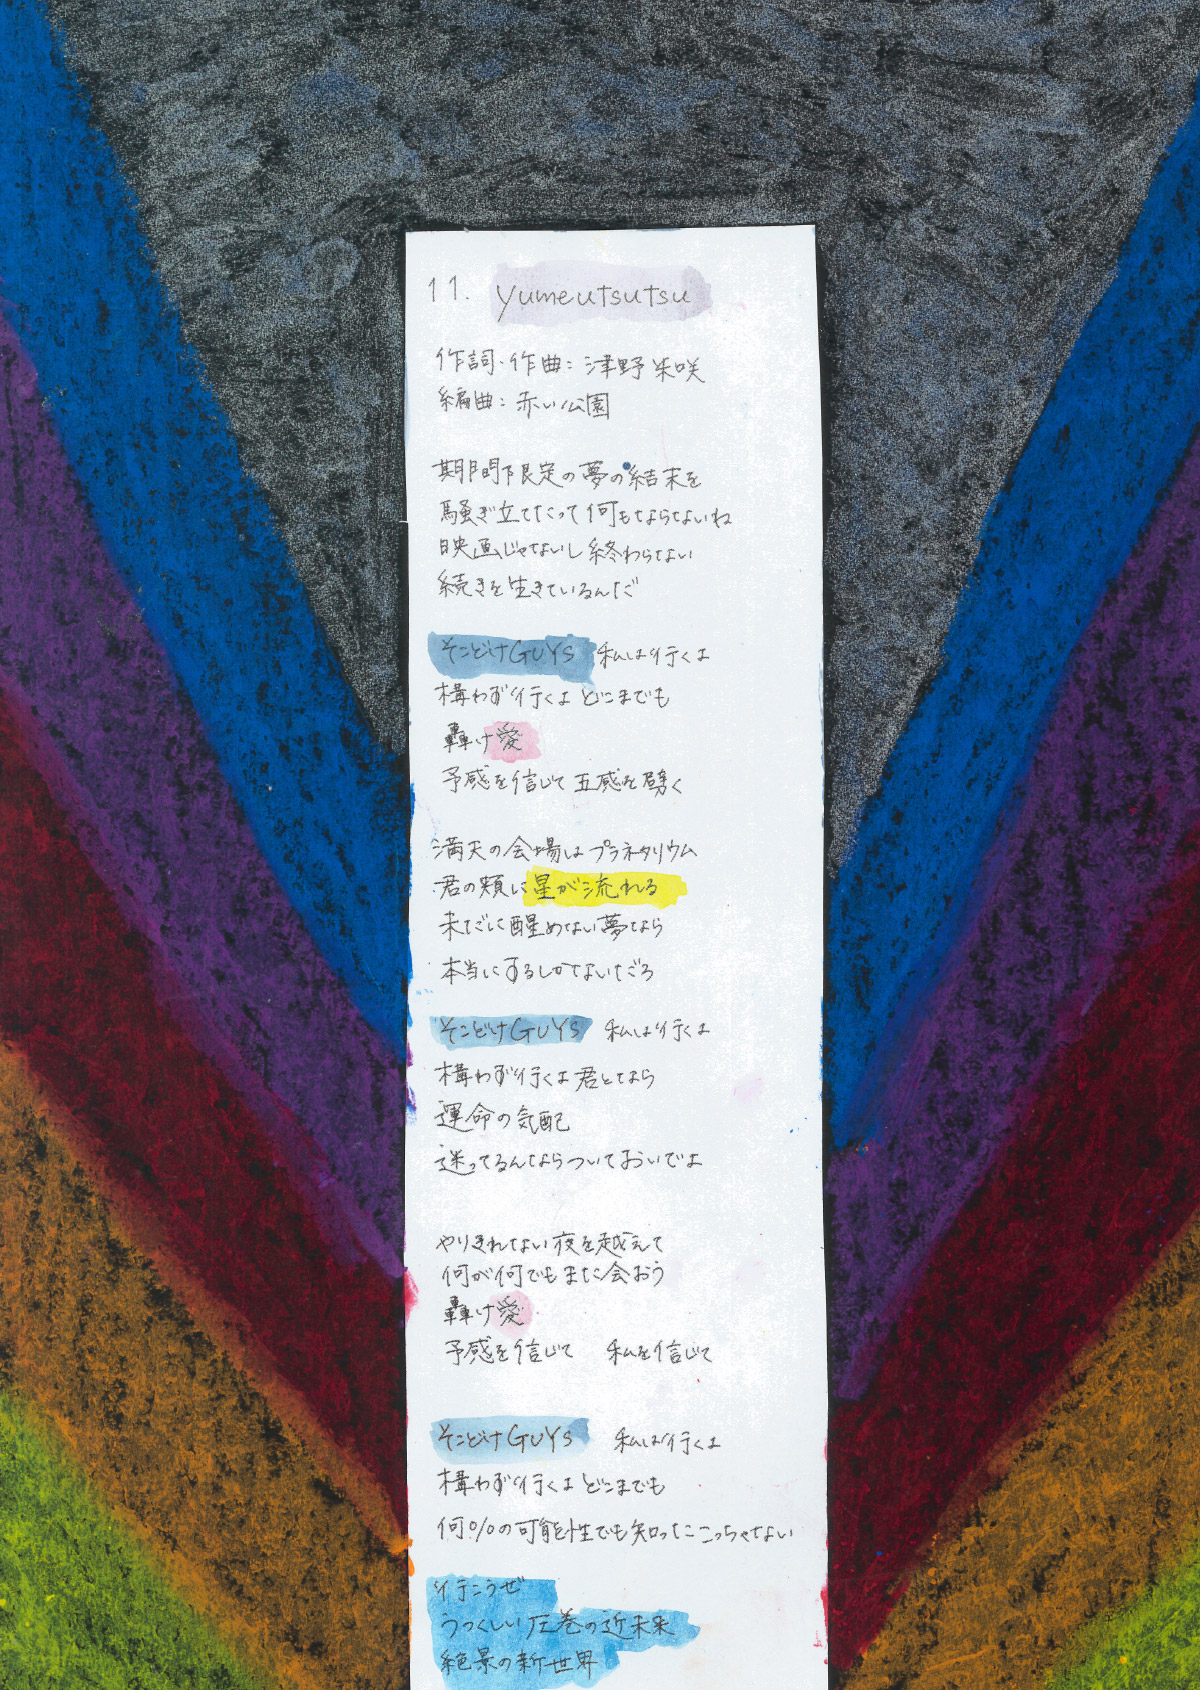 11. yumeutsutsu
作詞・作曲：津野米咲
編曲：赤い公園
期間限定の夢の結末を
騒ぎ立てたって何もならないね
映画じゃないし終わらない
続きを生きているんだ
そこどけGUYS 私は行くよ
構わず行くよ どこまでも
轟け愛
予感を信じて 五感を劈く
満天の会場はプラネタリウム
君の頬に星が流れる
未だに醒めない夢なら
本当にするしかないだろ
そこどけGUYS 私は行くよ
構わず行くよ 君となら
運命の気配
迷ってるんならついておいでよ
やりきれない夜を越えて
何が何でもまた会おう
轟け愛
予感を信じて 私を信じて
そこどけGUYS 私は行くよ
構わず行くよ どこまでも
何%の可能性でも知ったこっちゃない
行こうぜ
うつくしい圧巻の近未来
絶景の新世界